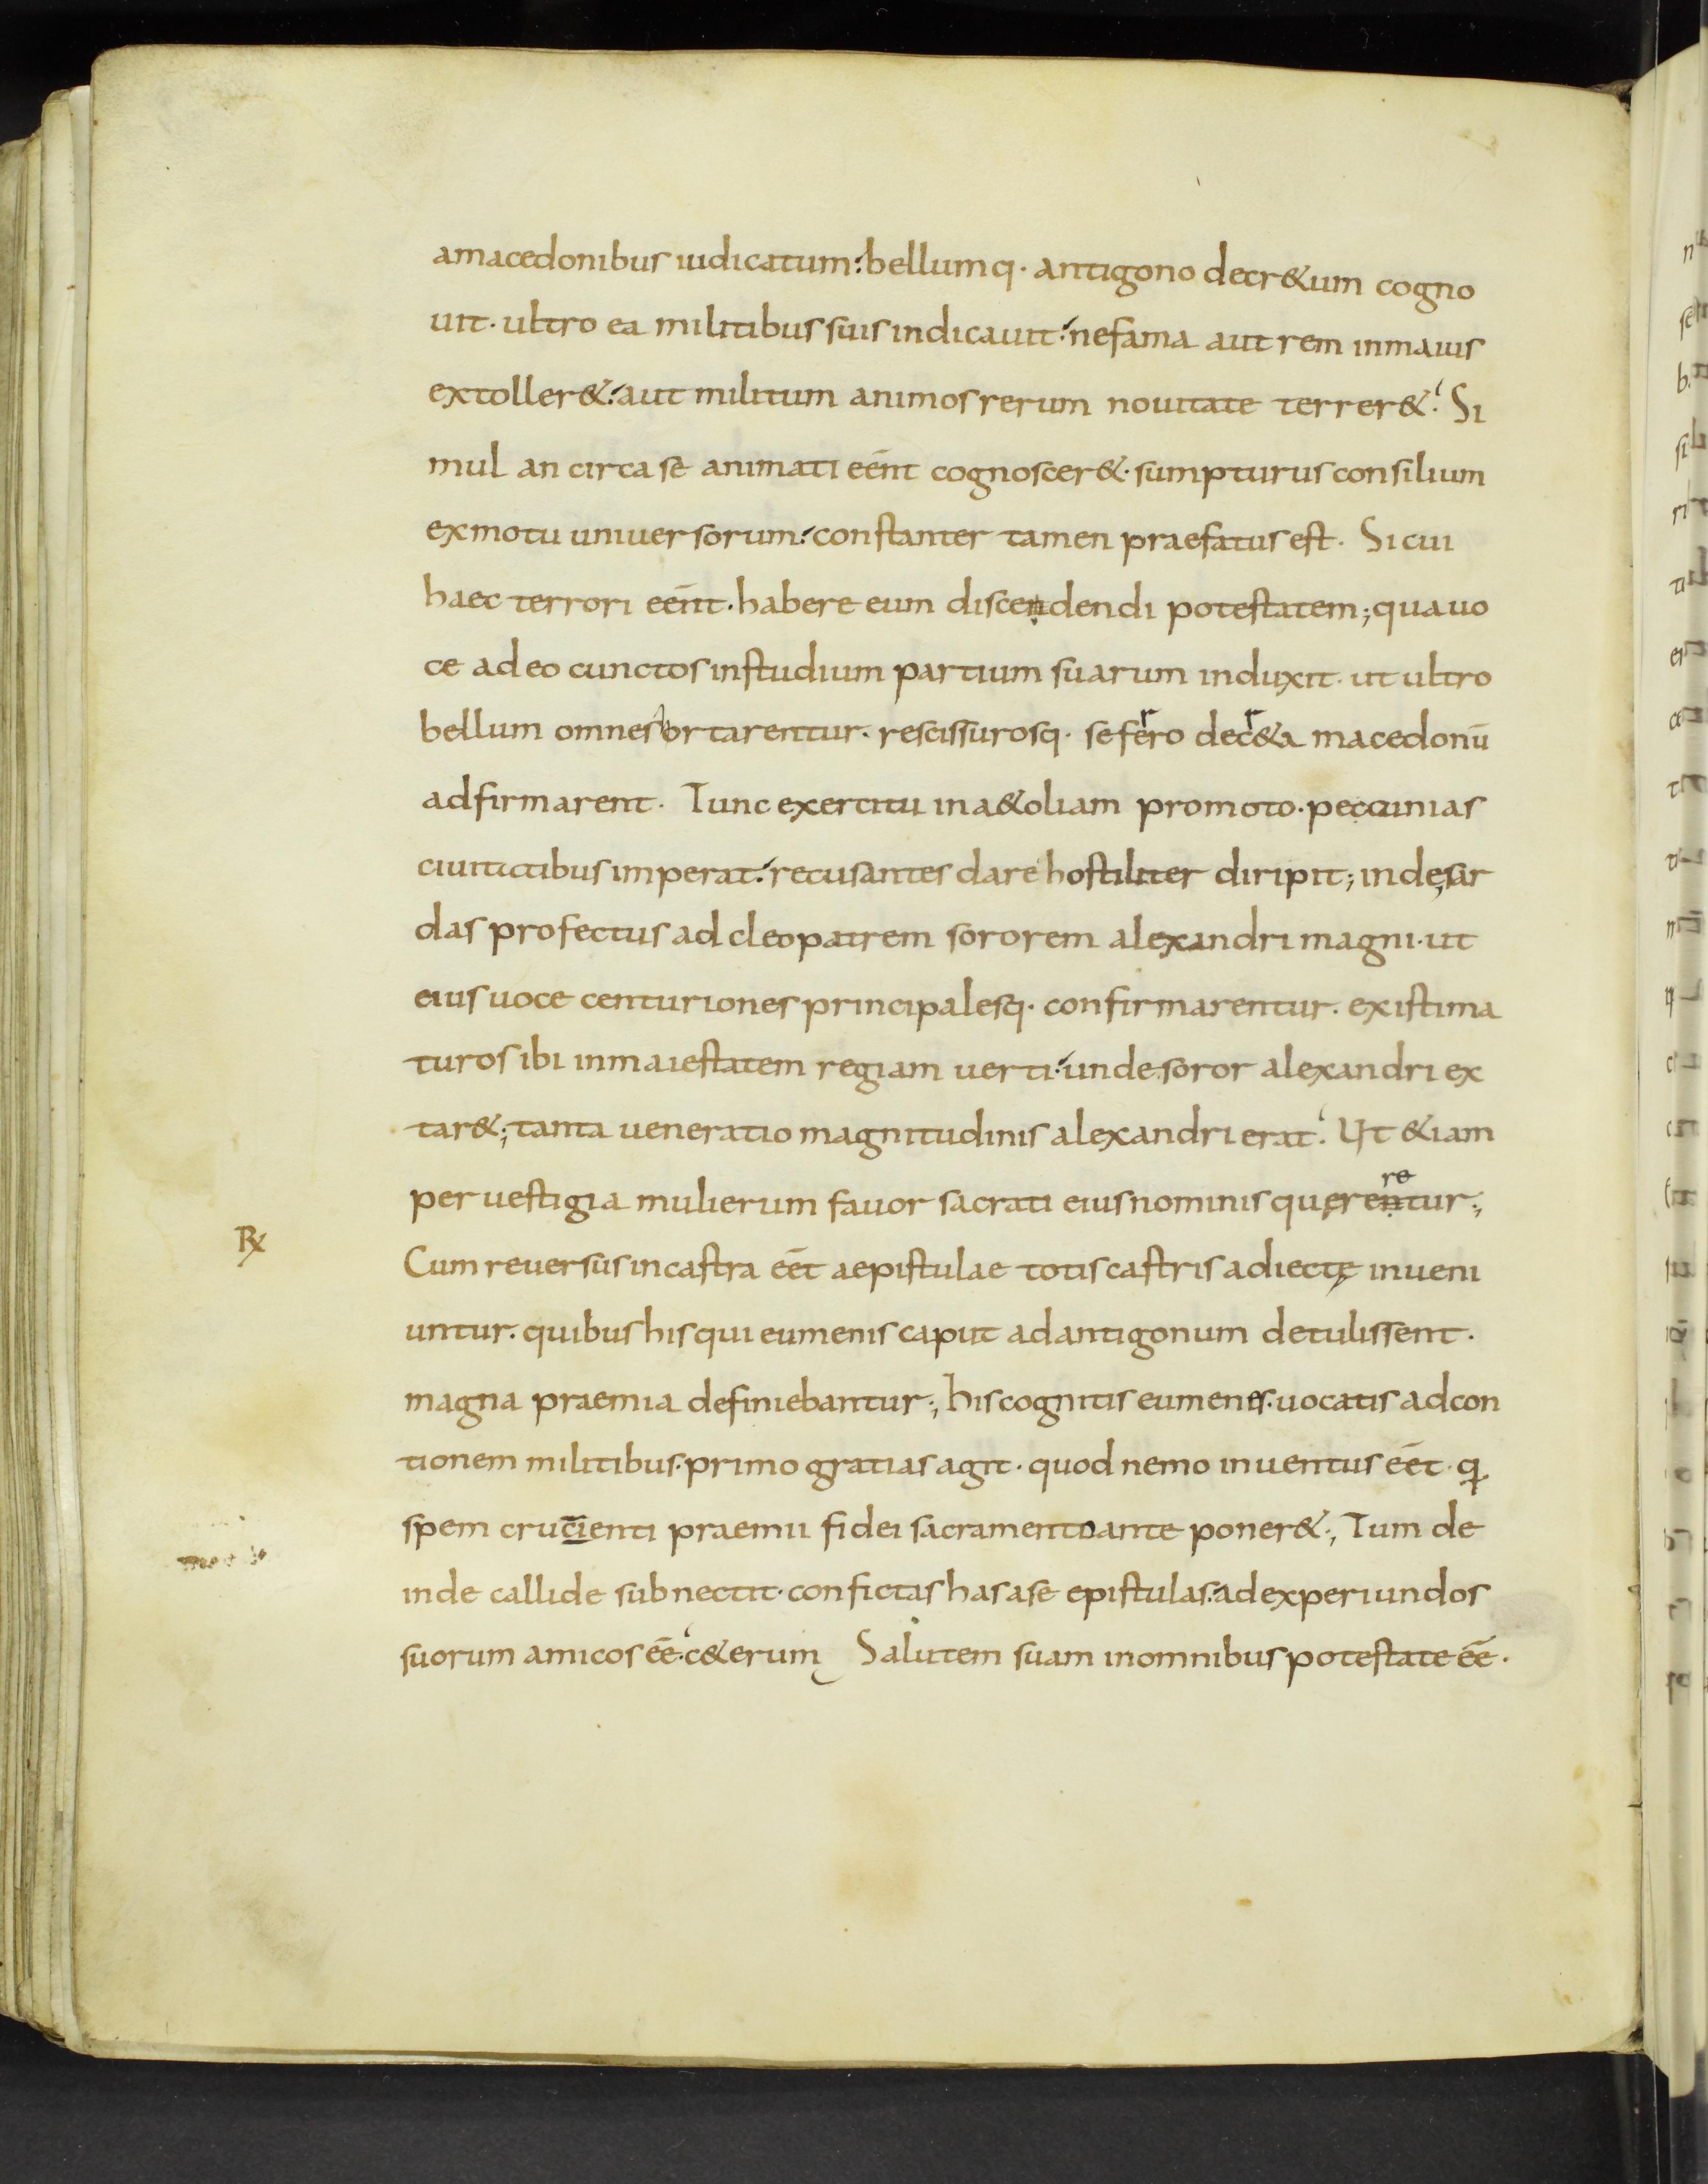 amacedonibus iudicatum: bellumq· antigono decr&um cogno
uit· ultro ea militibus suis indicauit: nefama aut rem inmaius
extoller&: aut militum animos rerum nouitate terrer&: Si
mul an circa se animati eent̄ cognoscer&· sumpturus consilium
exmotu uniuersorum: constanter tamen praefatus est· Sicui
haec terrori eent̄· habere eum discendendi potestatem; qua uo
ce adeo cunctos instudium partium suarum induxit· ut ultro
bellum omnes hortarentur· rescissurosq· se ferro decr&a macedonū
adfirmarent· Tunc exercitu ina&oliam promoto· peccunias
ciuitatibus imperat: recusantes dare hostiliter diripit; indę sar
das profectus ad cleopatrem sororem alexandri magni· ut
eius uoce centuriones principalesq· confirmarentur· existima
turos ibi inmaiestatem regiam uerti: unde soror alexandri ex
tar&; tanta ueneratio magnitudinis alexandri erat: Ut &iam
per uestigia mulierum fauor sacrati eius nominis quęrentur;
re
R̸
Cum reuersus incastra eēt aepistulae totis castris adiectę inueni
untur· quibus his qui eumenis caput adantigonum detulissent·
magna praemia definiebantur; his cognitis eumenes· uocatis adcon
tionem militibus· primo gratias agit· quod nemo inuentus eēt· q
spem crucienti praemii fidei sacramento ante poner&; Tum de
inde callide subnectit· confictas has ase epistulas· ad experiundos
suorum amicos eē· c&erum Salutem suam inomnibus potestate eē·